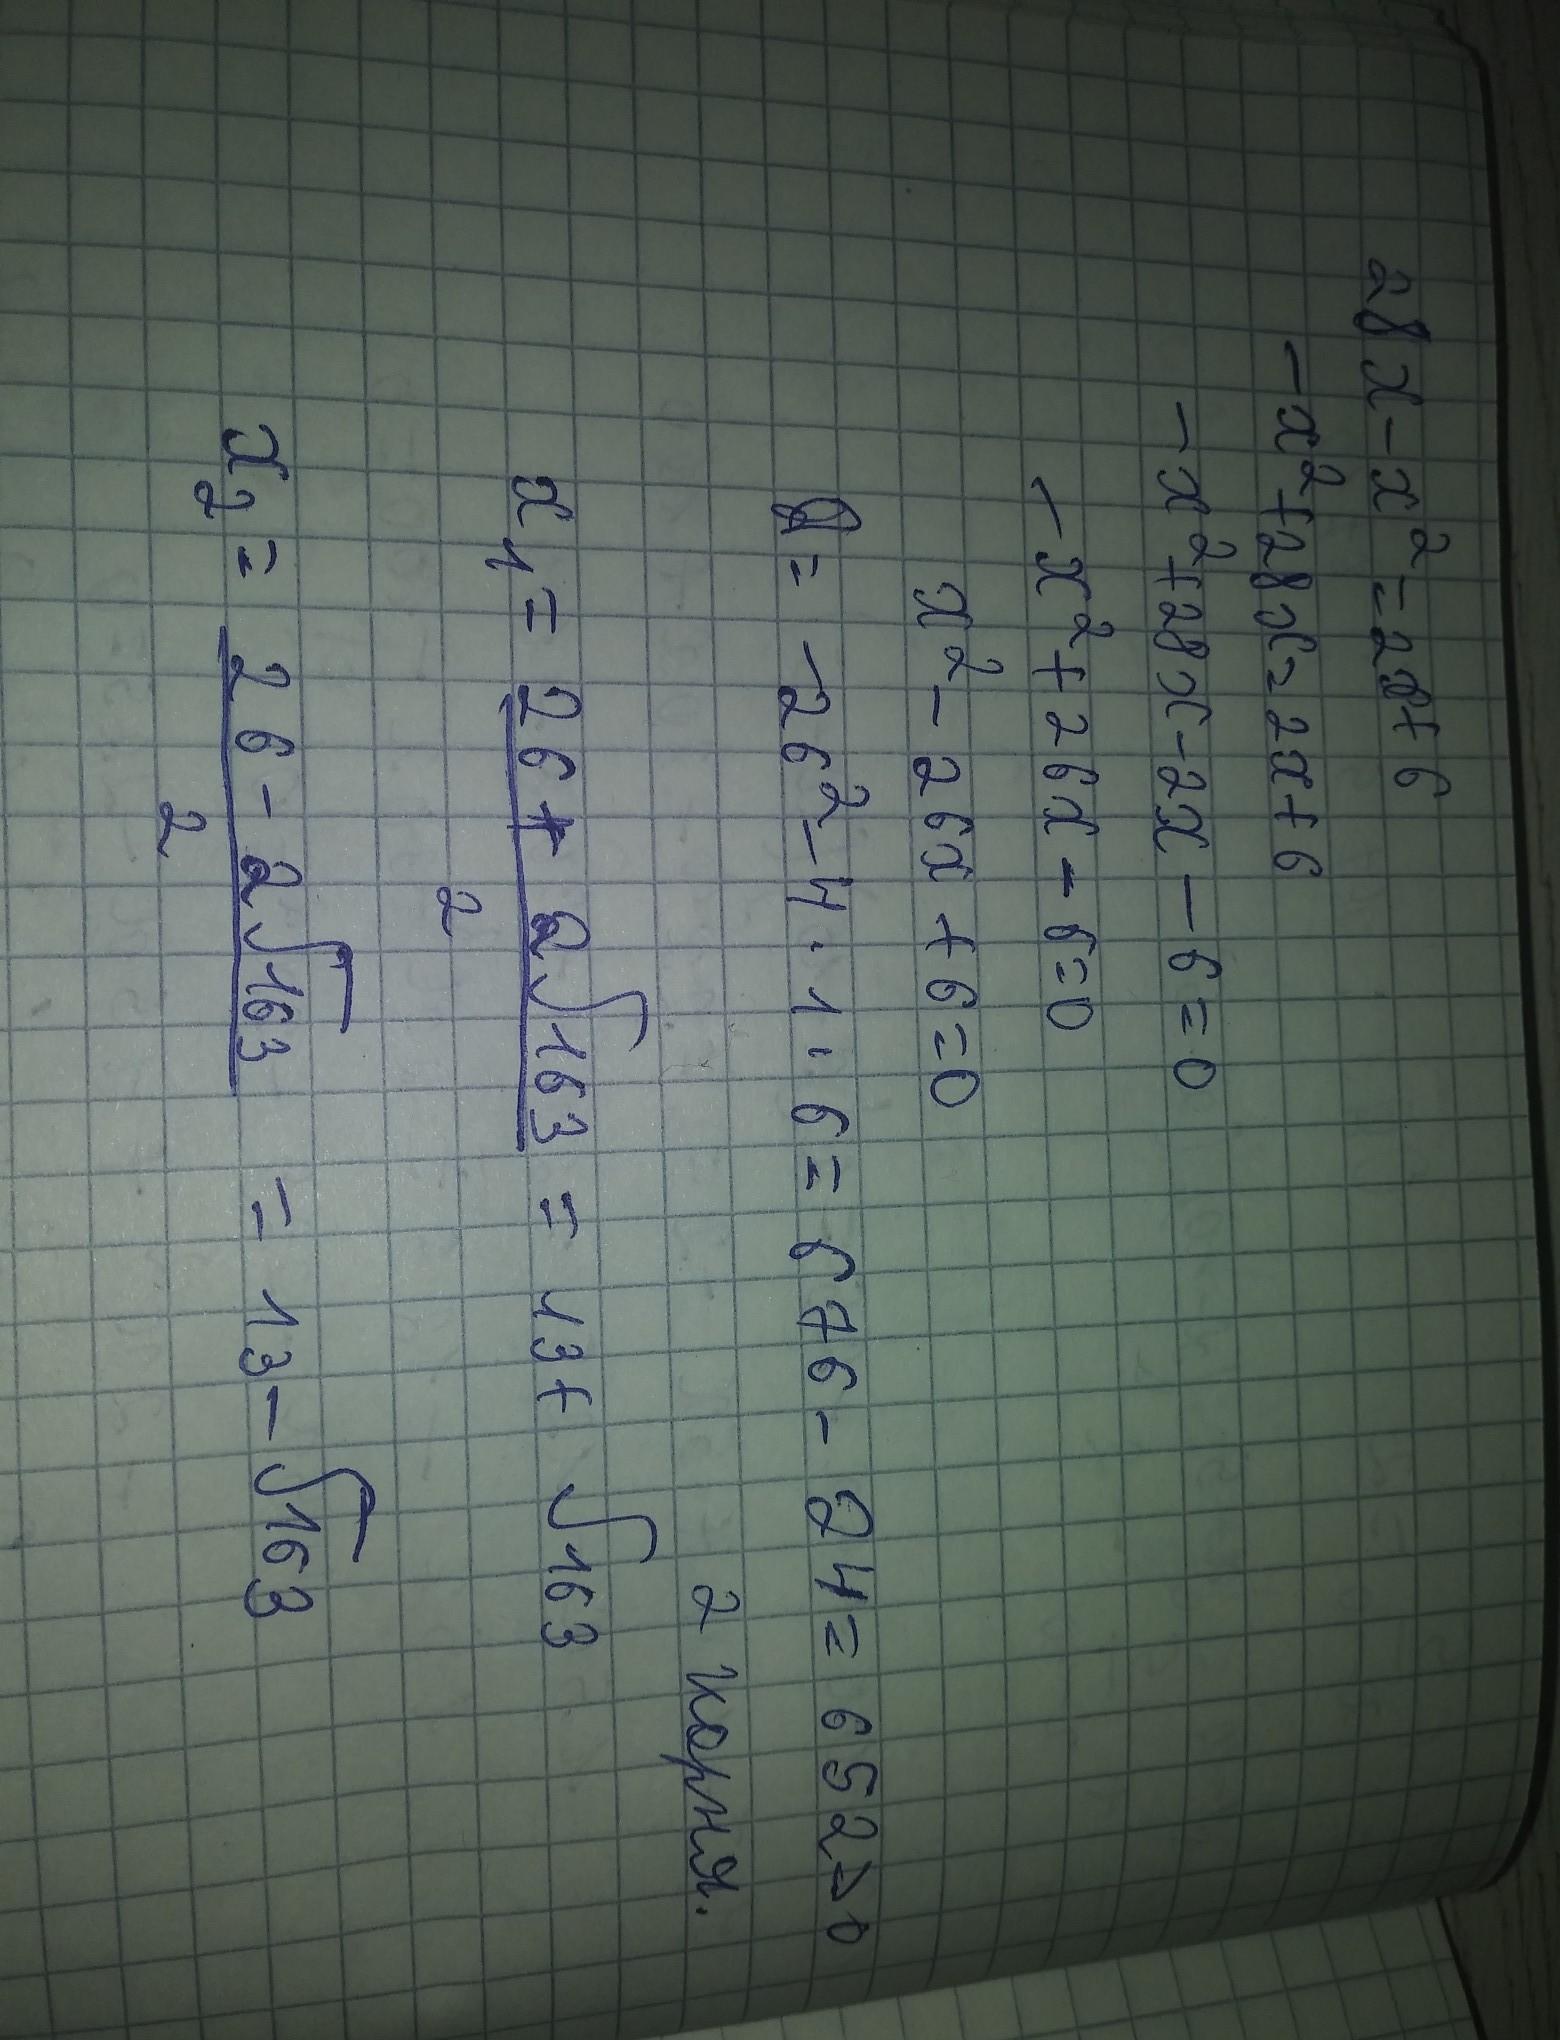 28x-x²=2x+6
-x²+28x=2x+6
-x²+28x-2x-6=0
-x²+26x-6=0
x²-26x+6=0
D=-26²-4·1·6=676-24=652>0
2 корня.
x₁=(26+2√163)/2=13+√163
x₂=(26-2√163)/2=13-√163